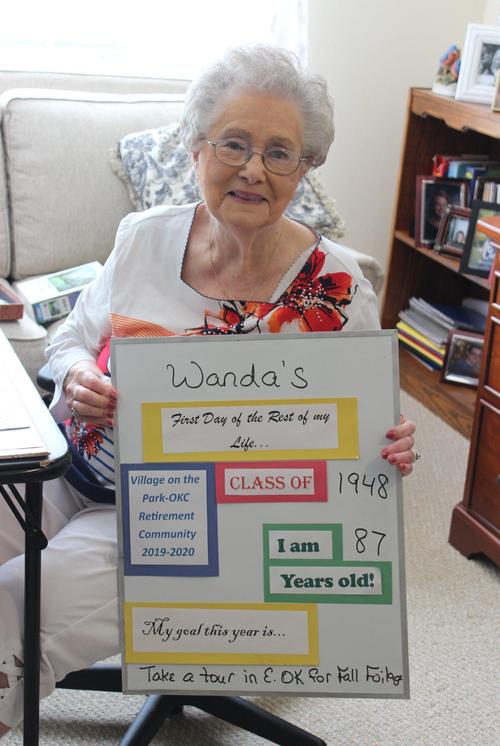 Wanda's
First Day of the Rest of my
Life...
Village on the
Park-OKC
Retirement
Community
2019-2020
CLASS OF 1948
I am 87
Years old!
My goal this year is...
Take a tour in E. OK for Fall Foilage